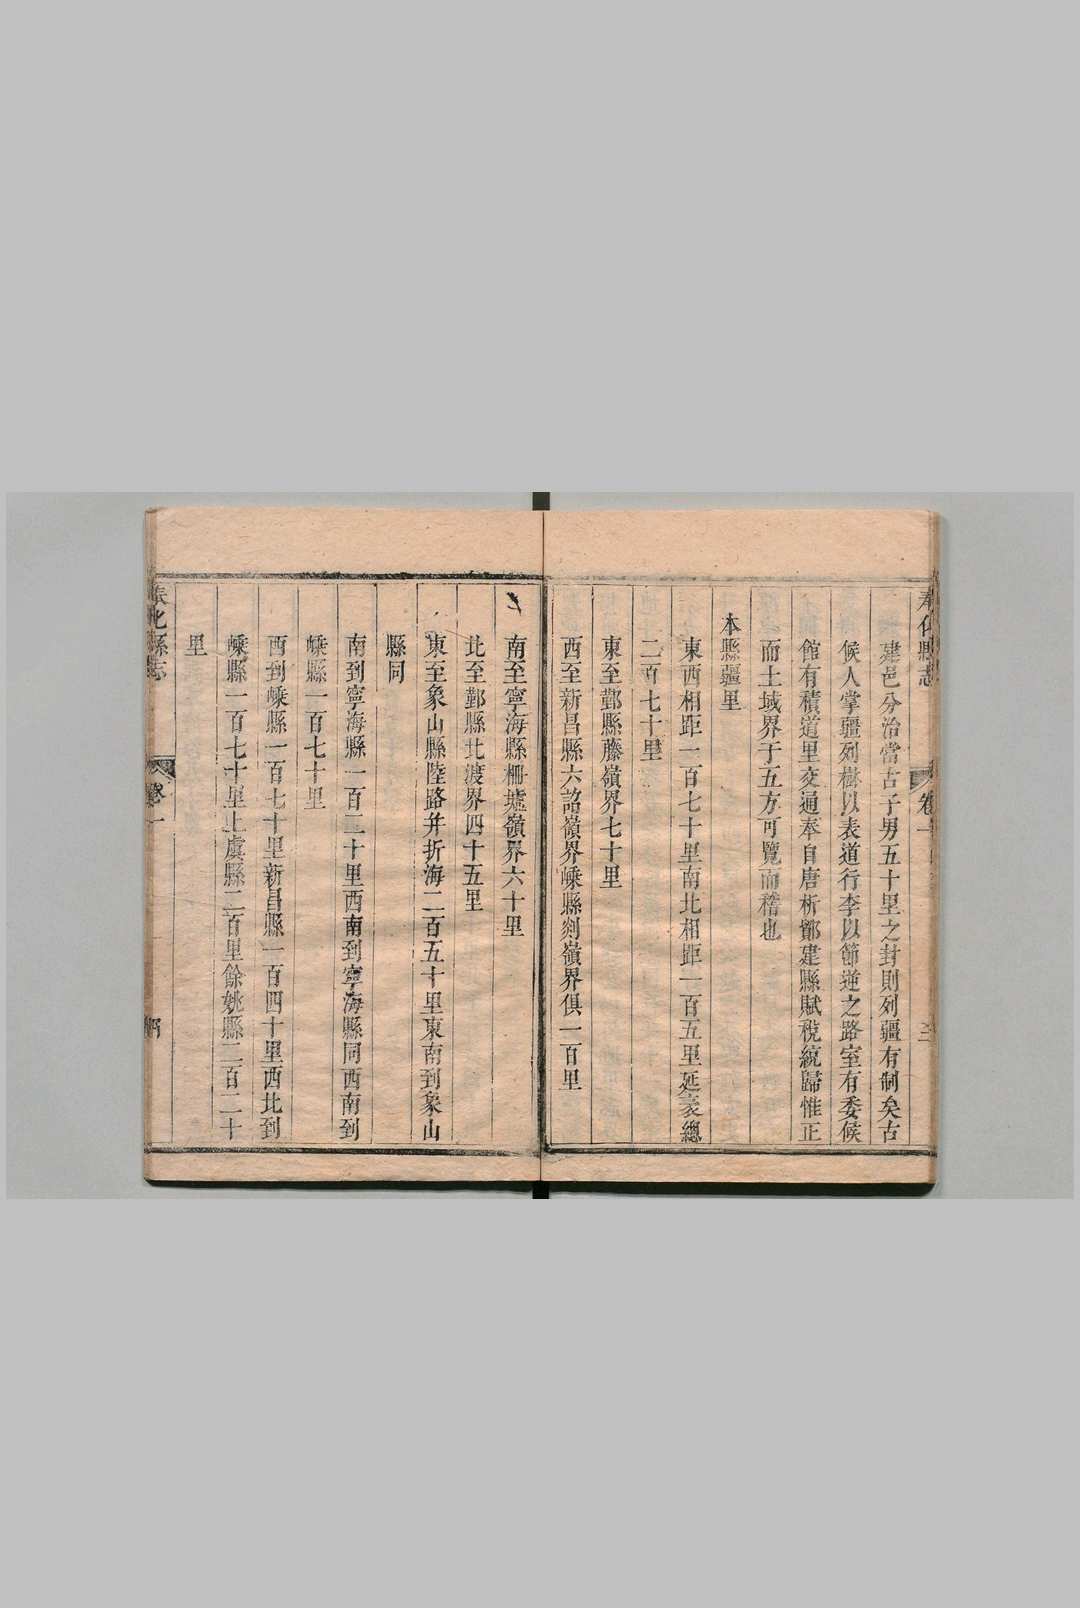 奉化縣志
卷一
建邑分治當古子男五十里之封則列疆有制矣古
候人掌疆列樹以表道行李以節逆之路室有委候
館有積道里交通奉自唐析鄮建縣賦稅統歸惟正
而土域界于五方可覽而稽也
本縣疆里
東西相距一百七十里南北相距一百五里延袤總
二百七十里
東至鄞縣藤嶺界七十里
西至新昌縣六詔嶺界嵊縣剡嶺界俱一百里
南至寧海縣柵墟嶺界六十里
北至鄞縣北渡界四十五里
東至象山縣陸路并折海二百五十里東南到象山
縣同
南到寧海縣一百二十里西南到寧海縣同西南到
嵊縣一百七十里
西到嵊縣一百七十里新昌縣一百四十里西北到
嵊縣一百七十里上虞縣二百里餘姚縣二百二十
里
奉化縣志
卷一